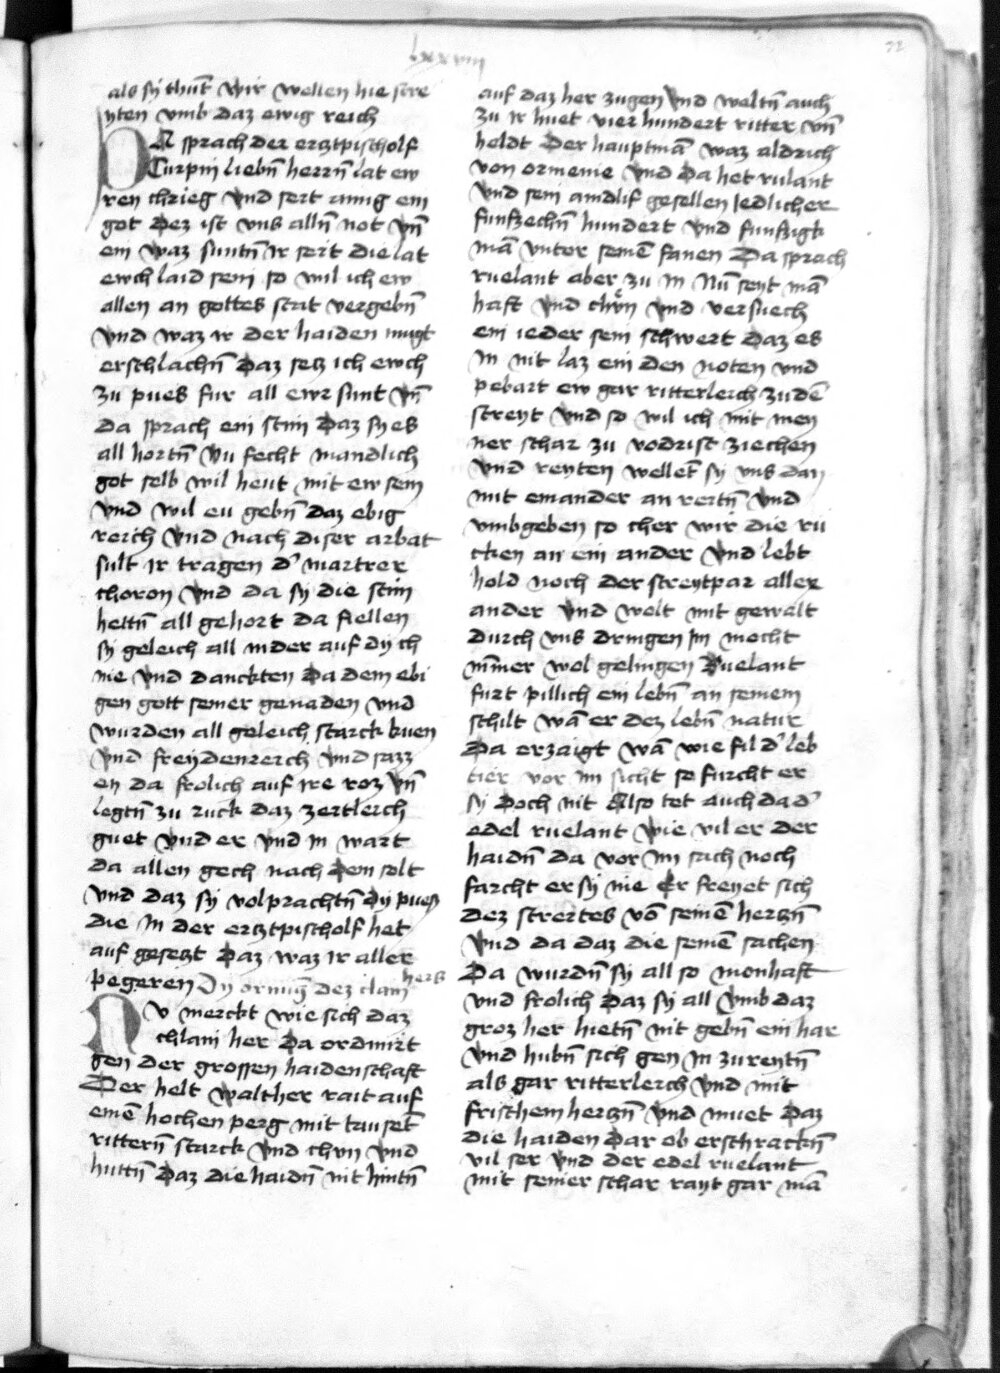 lxxviii
72
als sy thut̄ wir wellen hie stre
yten vmb daz ewig reich
DA sprach der ercztpischolf
Turpin liebn̄ herrn̄ lat ew
ren chrieg vnd seit ainig ein
got dez ist vns alln̄ not vn̄
ein waz suntn̄ Ir seit die lat
ewch laid sein so wil ich ew
allen an gottes stat vergebn̄
vnd waz ir der haiden mugt
erschlachn̄ Daz secz ich ewch
zu pues fur all ewr sunt vn̄
da sprach ein stim Daz sy es
all hortn̄ Nu fecht mandlich
got selb wil heut mit ew sein
vnd wil eu gebn̄ daz ebig
reich vnd nach diser arbat
sult ir tragen d' martrer
choron vnd da sy die stim
hettn̄ all gehort da fiellen
sy geleich all nider auf dy ch
nie vnd danckten Da dem ebi
gen gott seiner genaden vnd
wurden all geleich starck kuen
vnd freydenreich vnd sazz
en da frolich auf ire roz vn̄
legtn̄ zu ruck daz zertleich
guet vnd er vnd in wart
da allen gech nach Dem solt
vnd daz sy volprachtn̄ Dy pues
die In der ercztpischolf het
auf geseczt Daz waz ir aller
pegeren Dy ornuḡ dez clain hers
NU merckt wie sich daz
chlain her Da ordnirt
gen der grossen haidenschaft
Der helt walther rait auf
einē hochen perg mit tauset̄
rittern̄ starck vnd chvn vnd
huttn̄ Daz die haidn̄ nit hintn̄
auf daz her zugen vnd weltn̄ auch
zu Ir huet vier hundert ritter vn̄
heldt Der hauptmā waz aldrich
von ormenie vnd Da het rulant
vnd sein aindlif gesellen Iedlicher
funfzechn̄ hundert vnd funfzigk
mā vnter seinē fanen Da sprach
ruelant aber zu in Nū seyt mā
haft vnd chvn̄ vnd versuech
ein ieder sein schwert daz es
In nit laz ein den noten vnd
pebart ew gar ritterleich zu dē
streyt vnd so wil ich mit mey
ner schar zu vodrist ziechen
vnd reyten wellet̄ sy vns dan
mit einander an reitn̄ vnd
vmbgeben so cher wir die ru
cken an ein ander vnd lebt
hold noch der streytpar aller
ander vnd wolt mit gewalt
durch vns dringen Im mocht
nim̄er wol gelingen Ruelant
furt pillich ein lebn̄ an seinem
schilt wā er dez lebn̄ natur
Da erzaigt wā wie fil d' leb
tier vor im sicht so furcht er
sy Doch nit Also tet auch da d'
edel ruelant wie vil er der
haidn̄ da vor im sach noch
farcht er sy nie Er freyet sich
dez streites vō seinē herczn̄
vnd da daz die seinē sachen
Da wurdn̄ sy all so monhaft
vnd frolich Daz sy all vmb daz
groz her hietn̄ nit gebn̄ ein har
vnd hubn̄ sich gen in zu reytn̄
als gar ritterleich vnd mit
frischem herczn̄ vnd muet Daz
die haiden Dar ob erschrackn̄
vil ser vnd der edel ruelant
mit seiner schar rayt gar mā